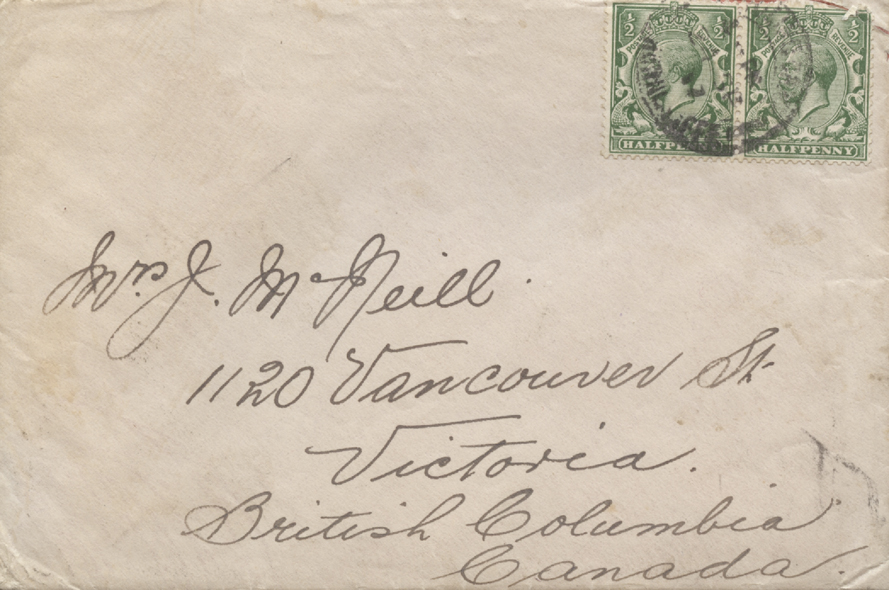 ½ ½ ½ ½
POSTAGE REVENUE POSTAGE REVENUE
HALFPENNY
Mrs. J. McNeill.
1120 Vancouver St.
Victoria.
British Columbia
Canada.